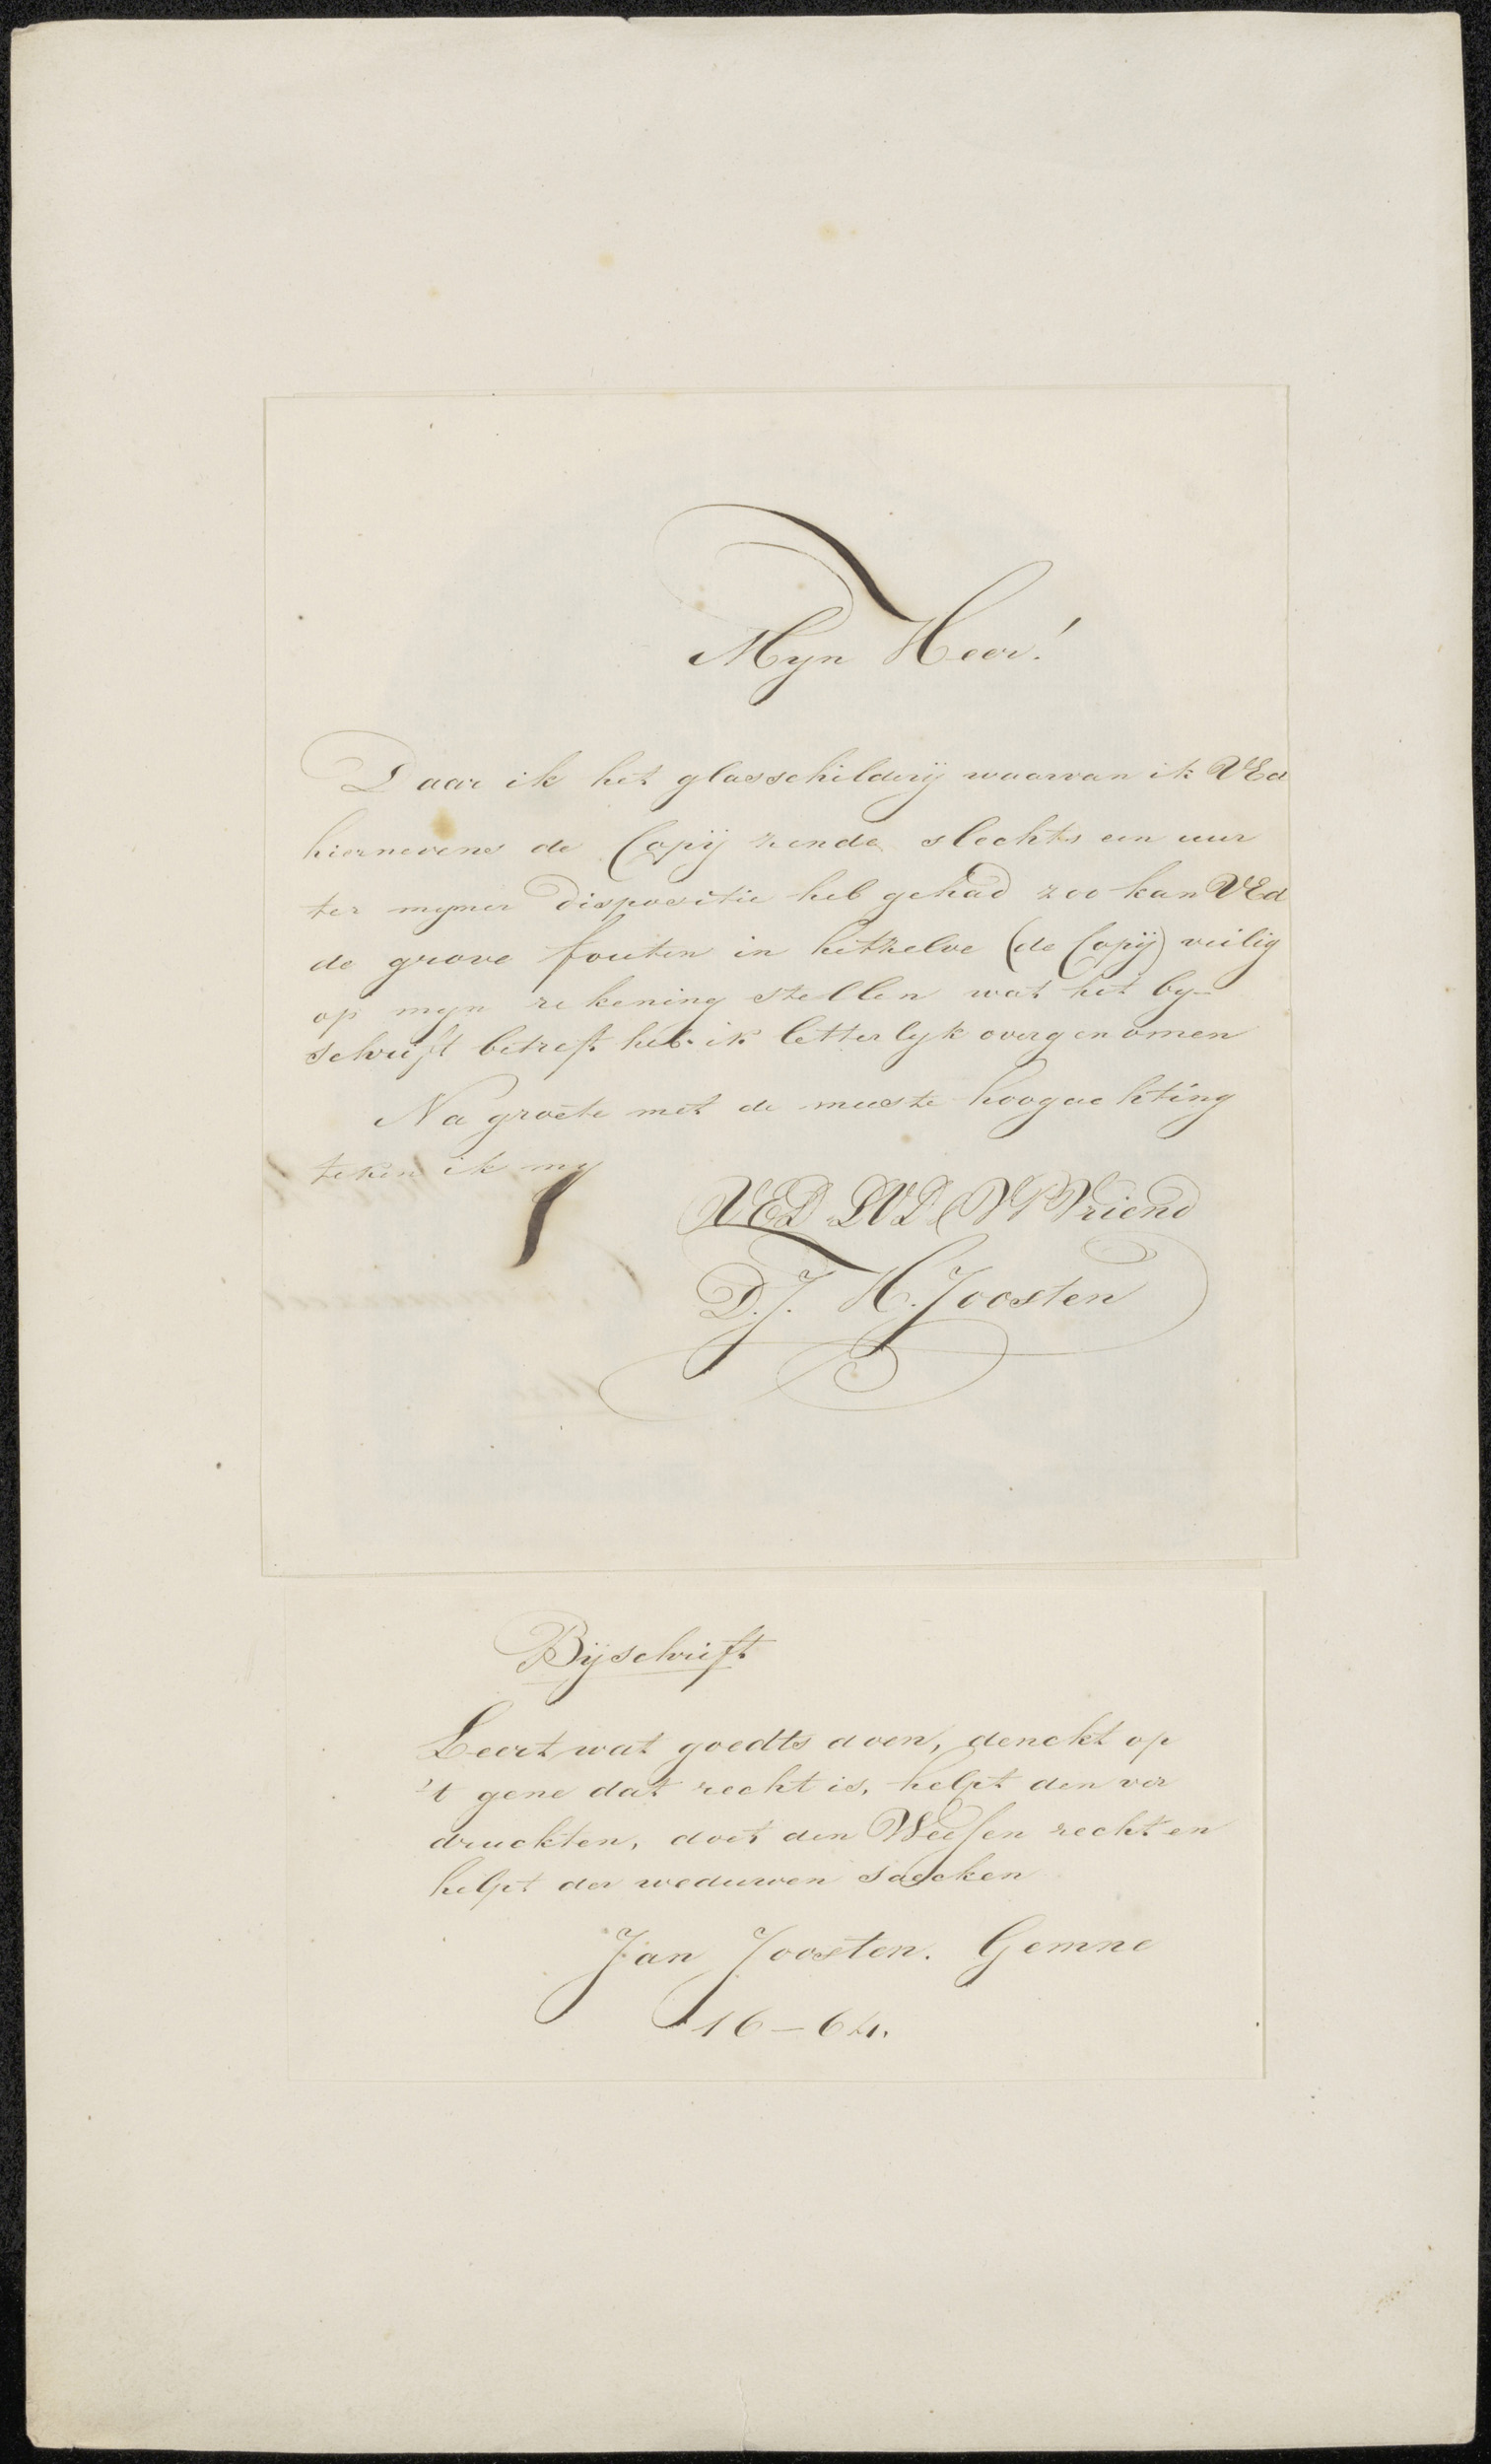 Mijn Heer!
Daar ik het glasschilderij waarvan ik UEd
hiernevens de Copij zende slechts een uur
ter mijner dispositie heb gehad zoo kan UEd
de grove fouten in hetzelve (de Copij) veilig
op mijn rekening stellen wat het by-
schrift betreft heb ik letterlyk overgenomen
Na groete met de meeste hoogachting
teken ik my
UED DVD Vriend
D.J. H. Joosten
Bijschrift
Leert wat goedts doen, denckt op
't gene dat recht is, helpt den ver
druckten, doet den Weesen recht en
helpt der weduwen saecken
Jan Joosten. Gemne
16-64.